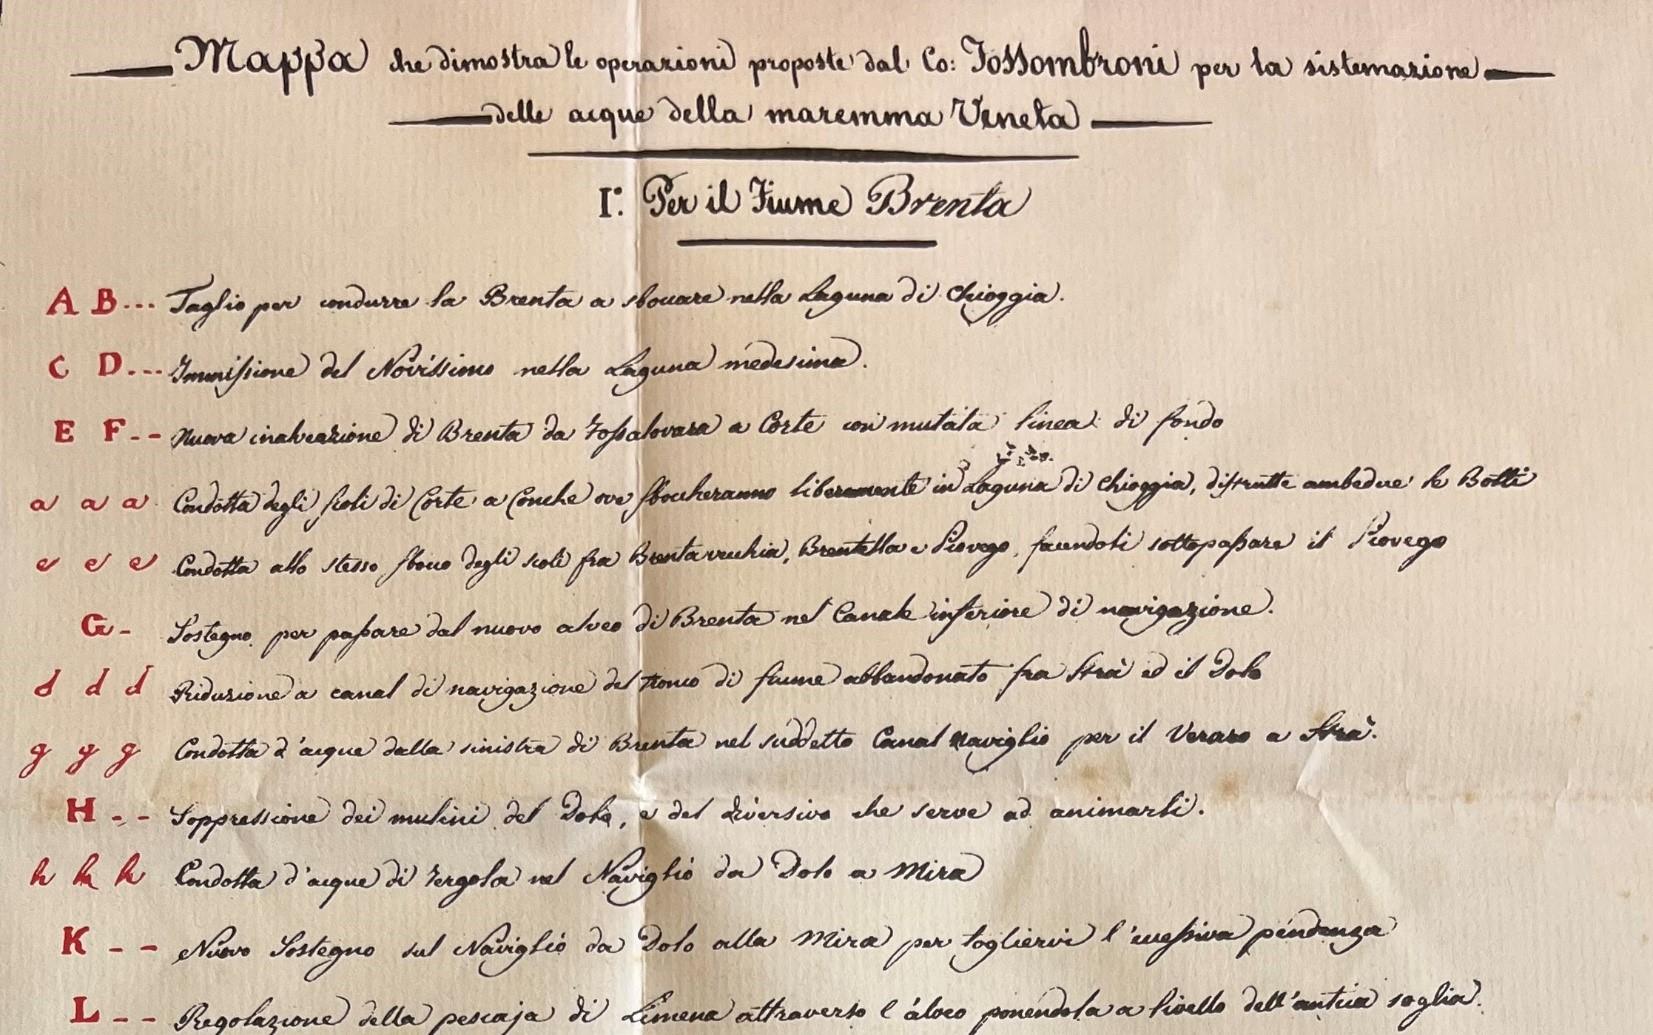 Mappa che dimostra le operazioni proposte dal Co: Fossombroni per la sistemazione
delle acque della maremma Veneta
I.° Per il Fiume Brenta
A B... Taglio per condurre la Brenta a sboccare nella Laguna di Chioggia.
C D... Immissione del Novissimo nella Laguna medesima.
E F-- Nuova inalveazione di Brenta da Fossalovara a Corte con mutata linea di fondo
a a a Condotta degli scoli di Corte a Conche ove sboccheranno liberamente in Laguna di Chioggia, distrutte ambedue le Botti
e e e Condotta allo stesso sbocco degli scoli fra Brenta vecchia, Brentella e Piovego, facendoli sottopassare il Piovego
G- Sostegno per passare dal nuovo alveo di Brenta nel Canale inferiore di navigazione.
d d d Riduzione a canal di navigazione del tronco di fiume abbandonato fra Strà ed il Dolo
g g g Condotta d'acque dalla sinistra di Brenta nel suddetto Canal naviglio per il Veraro a Strà.
H -- Soppressione dei mulini del Dolo, e del diversivo che serve ad animarli.
h h h Condotta d'acque di Tergola nel Naviglio da Dolo a Mira
K -- Nuovo Sostegno sul Naviglio da Dolo alla Mira per togliervi l'eccessiva pendenza
L -- Regolazione della pescaja di Limena attraverso l'alveo ponendola a livello dell'antica soglia.